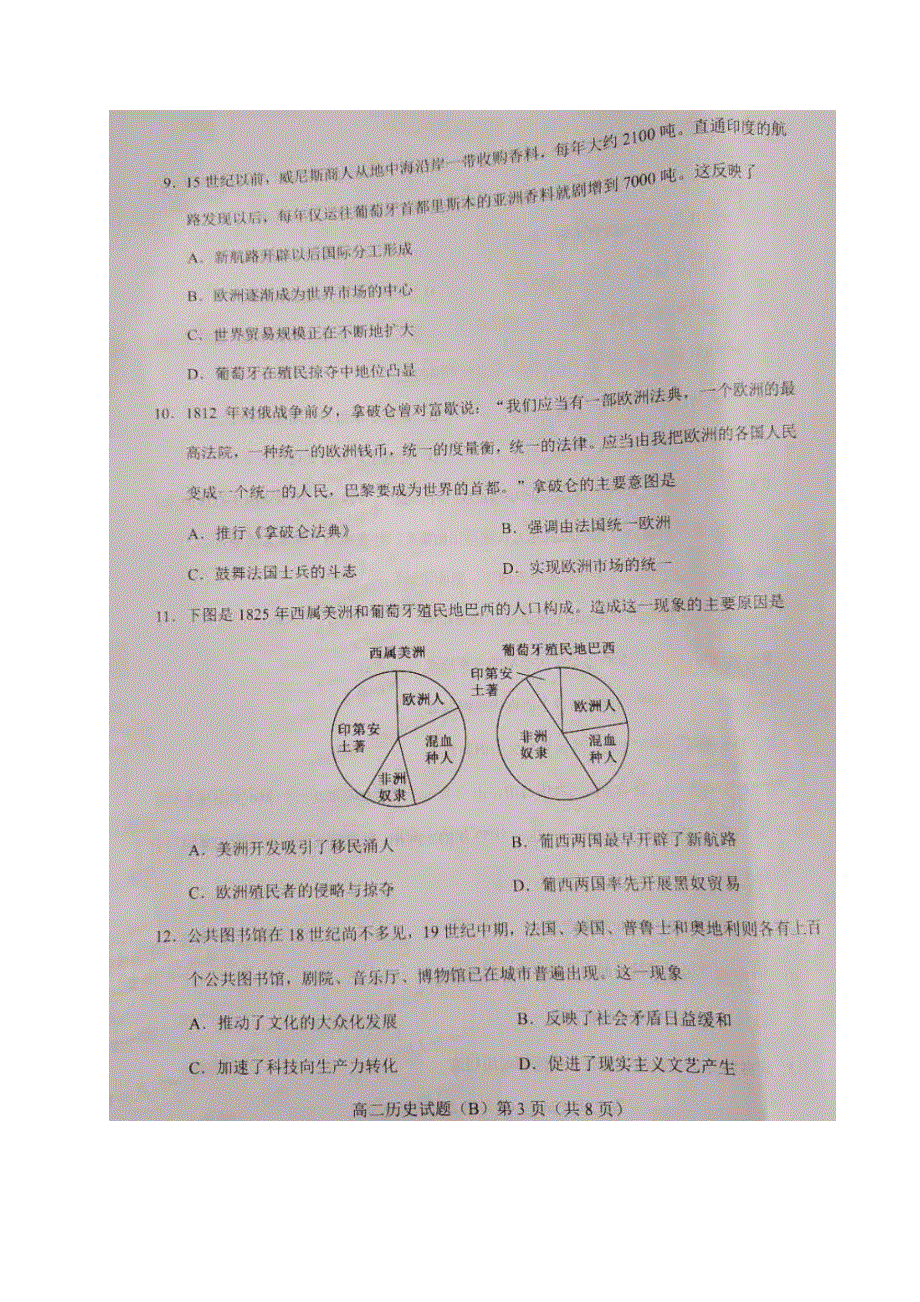 9．15世纪以前，威尼斯商人从地中海沿岸一带收购香料，每年大约2100吨。直通印度的航
路发现以后，每年仅运往葡萄牙首都里斯本的亚洲香料就剧增到7000吨。这反映了
A．新航路开辟以后国际分工形成
B．欧洲逐渐成为世界市场的中心
C．世界贸易规模正在不断地扩大
D．葡萄牙在殖民掠夺中地位凸显
10．1812 年对俄战争前夕，拿破仑曾对富歇说：“我们应当有一部欧洲法典，一个欧洲的最
高法院，一种统一的欧洲钱币，统一的度量衡，统一的法律。应当由我把欧洲的各国人民
变成一个统一的人民，巴黎要成为世界的首都。”拿破仑的主要意图是
A．推行《拿破仑法典》 B．强调由法国统一欧洲
C．鼓舞法国士兵的斗志 D．实现欧洲市场的统一
11．下图是1825年西属美洲和葡萄牙殖民地巴西的人口构成。造成这一现象的主要原因是
西属美洲
欧洲人
印第安
土著
混血
种人
非洲
奴隶
葡萄牙殖民地巴西
印第安
土著
欧洲人
非洲
奴隶
混血
种人
A．美洲开发吸引了移民涌人 B．葡西两国最早开辟了新航路
C．欧洲殖民者的侵略与掠夺 D．葡西两国率先开展黑奴贸易
12．公共图书馆在18世纪尚不多见，19世纪中期，法国、美国、普鲁士和奥地利则各有上百
个公共图书馆，剧院、音乐厅、博物馆已在城市普遍出现。这一现象
A．推动了文化的大众化发展 B．反映了社会矛盾日益缓和
C．加速了科技向生产力转化 D．促进了现实主义文艺产生
高二历史试题（B）第3页（共8页）